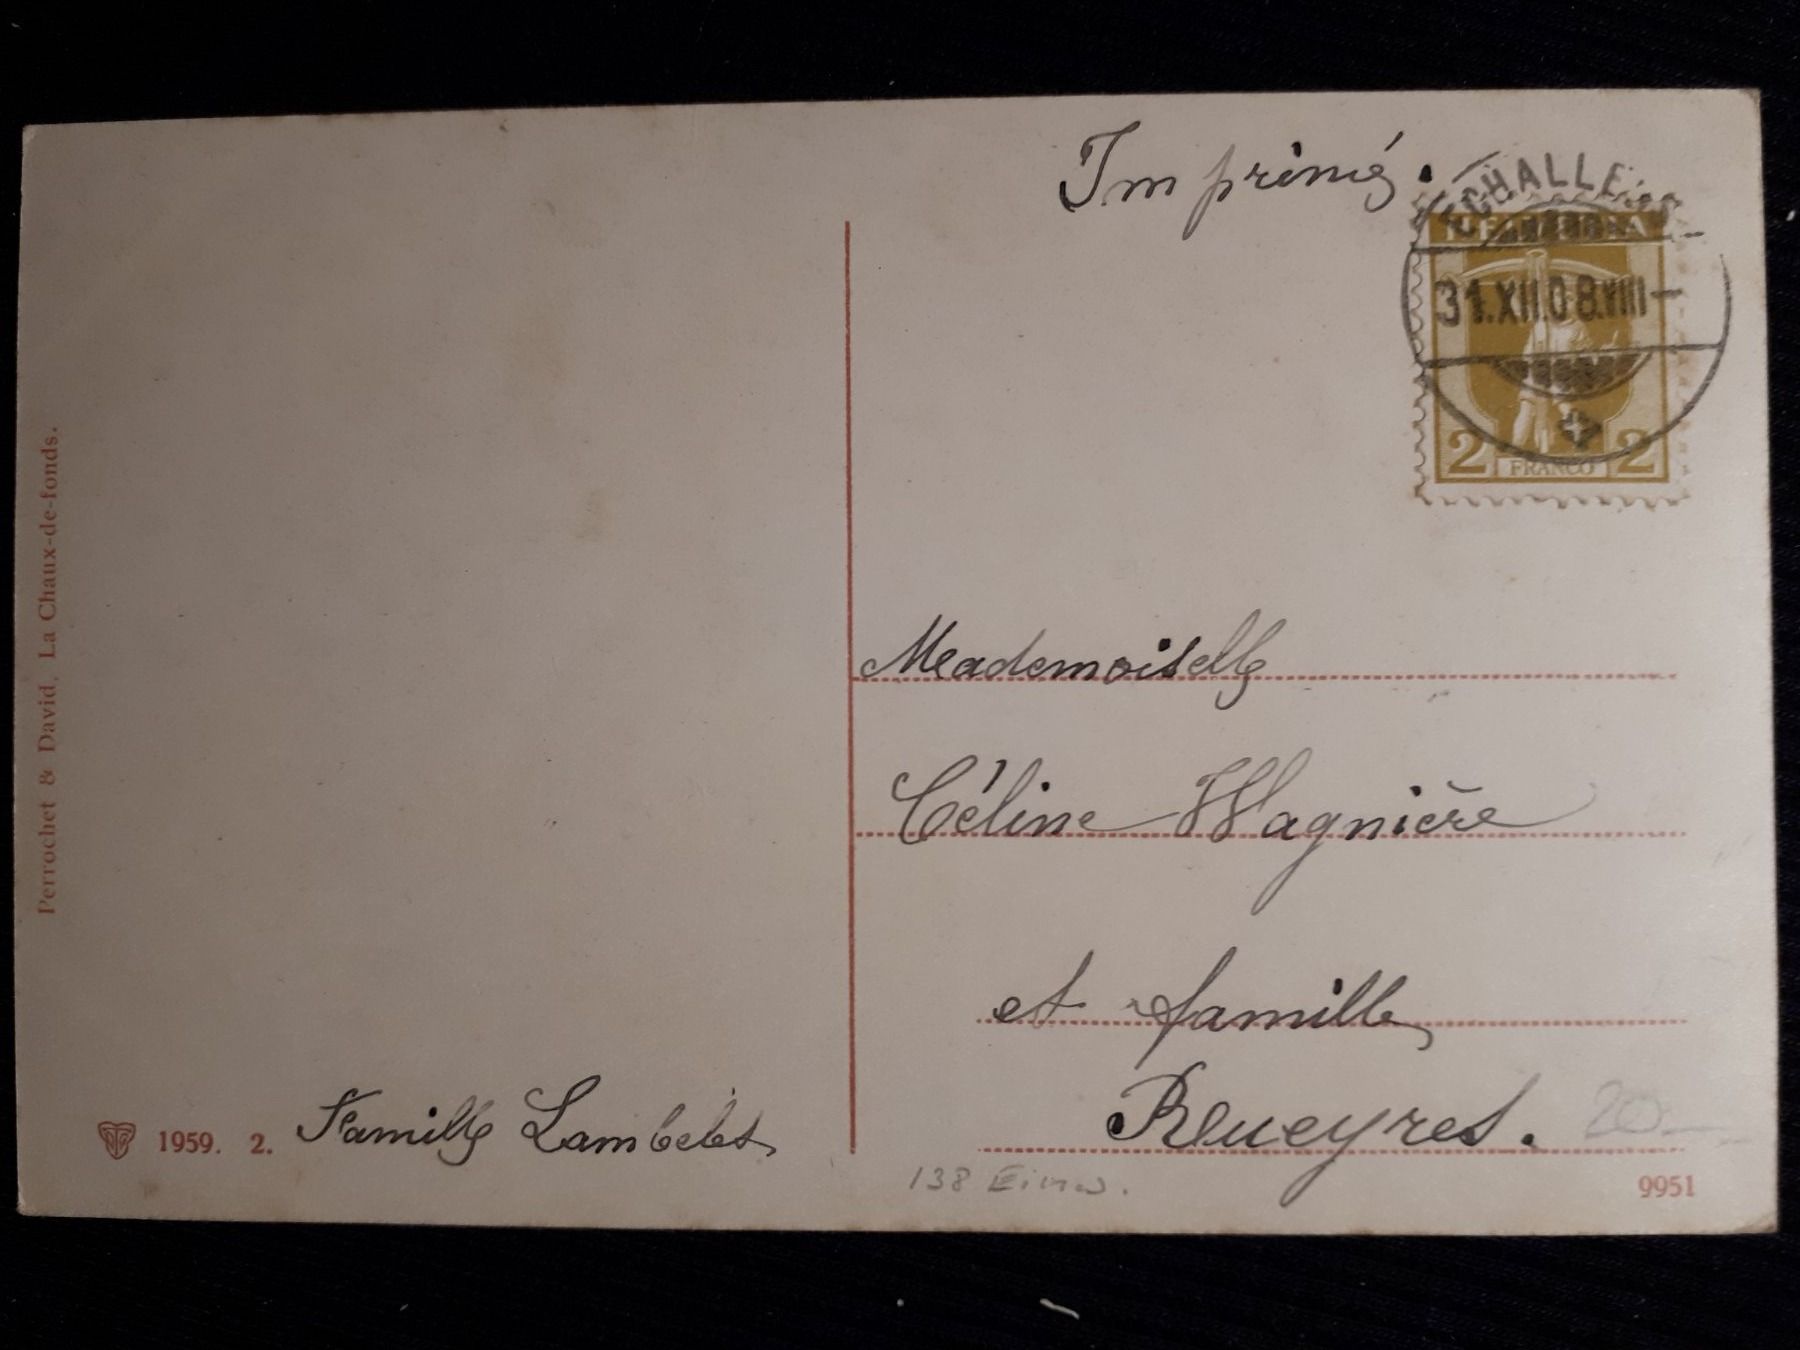 Imprimé.
ECHALLENS
HELVETIA
31.XII.08.VIII-
2 FRANCO 2
Mademoiselle
Céline Wagnière
et famille
Rueyres.
20.-
Famille Lambelet
1959. 2.
138 Einw.
9951
Perrochet & David, La Chaux-de-fonds.